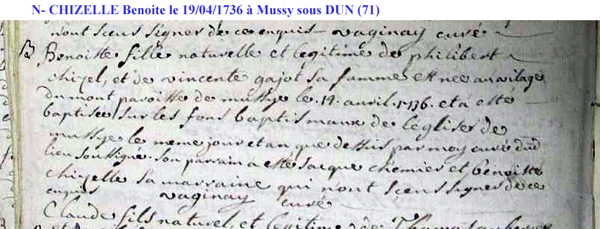 N- CHIZELLE Benoite le 19/04/1736 à Mussy sous DUN (71)
nont sceu signer de ce enquis - vaginay curé
B Benoitte fille naturelle et legitime de philibert
chizel, et de vincente gajot sa famme est nee au vilage
du mont paroisse de mussye le 19 avril 1736 et a esté
baptisee sur les fons baptismaux de leglise de
mussye le meme jour et an que dessus par moy curé dud
lieu soussigné son parrain a esté jacque chemier et benoitte
chizelle sa marraine qui nont sceu signer de ce
enquis vaginay curé
Claude fils naturel, et legitime de Thomas